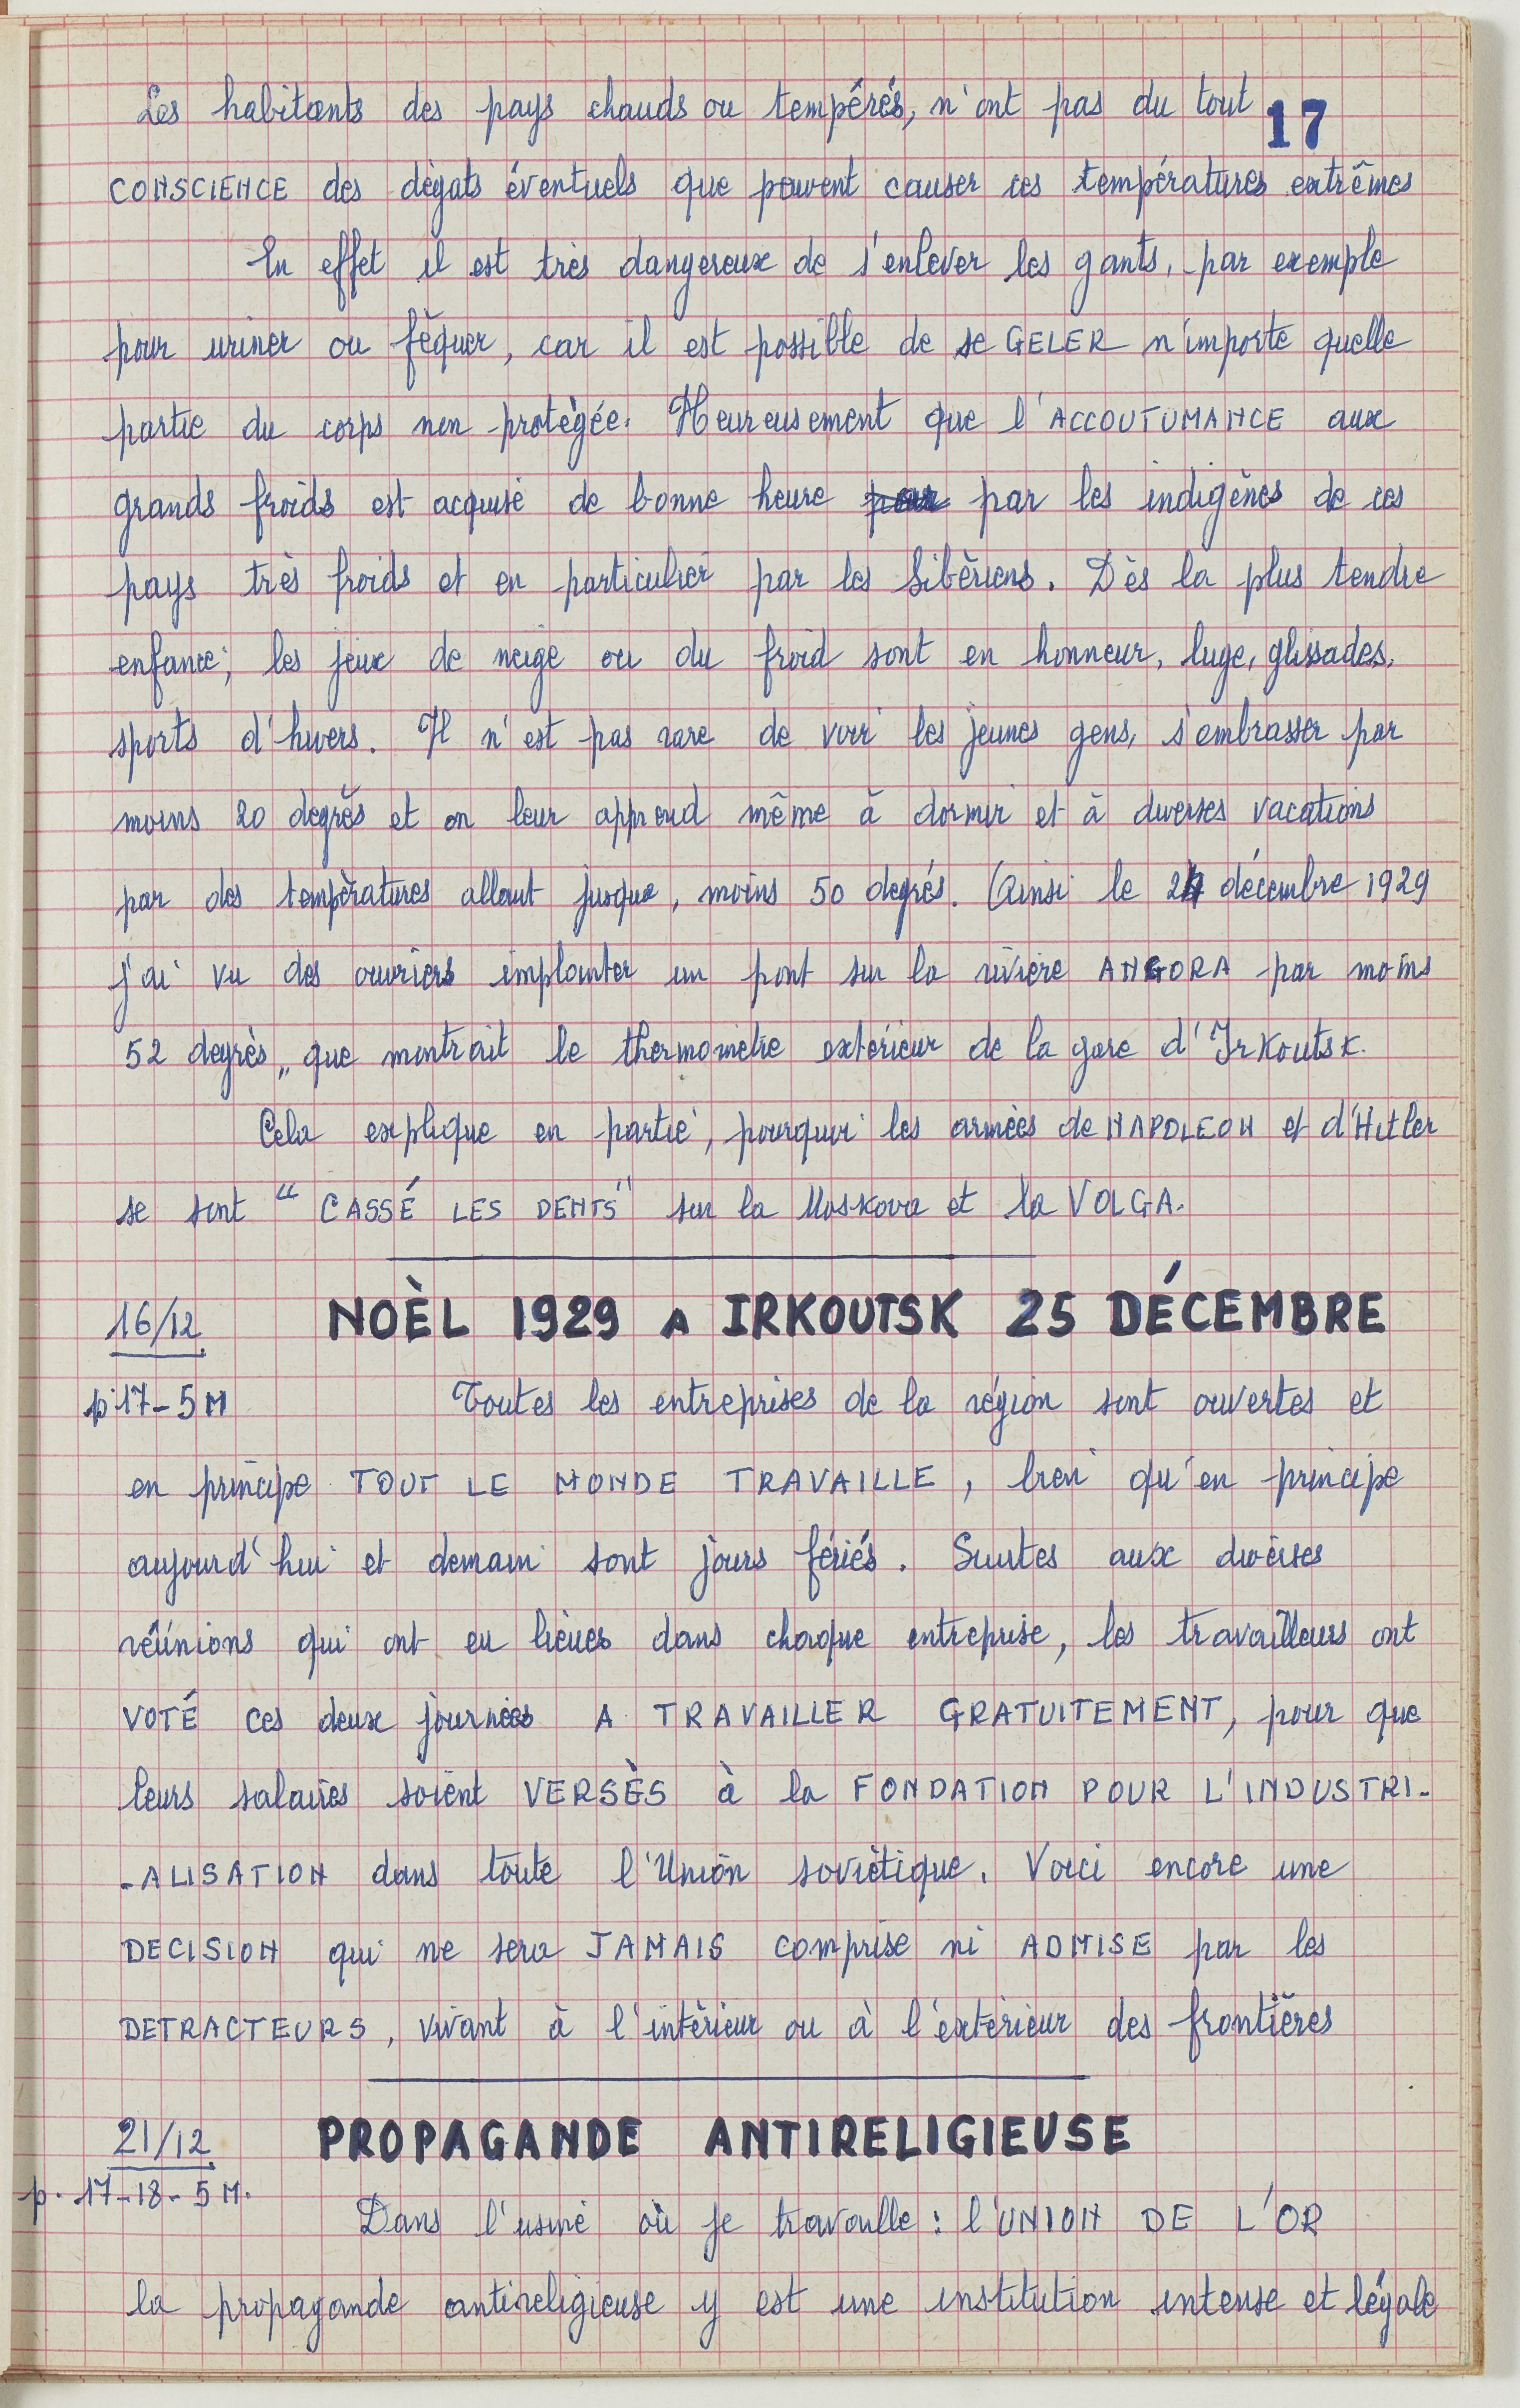 Les habitants des pays chauds ou tempérés, n'ont pas du tout
17
CONSCIENCE des dégats éventuels que peuvent causer ces températures extrêmes
En effet il est très dangereux de s'enlever les gants, par exemple
pour uriner ou féquer, car il est possible de se GELER n'importe quelle
partie du corps non protégée. Heureusement que l'ACCOUTUMANCE aux
grands froids est acquise de bonne heure par les indigènes de ces
pays très froids et en particulier par les Sibériens. Dès la plus tendre
enfance, les jeux de neige ou du froid sont en honneur, luge, glissades,
sports d'hivers. Il n'est pas rare de voir les jeunes gens, s'embrasser par
moins 20 degrés et on leur apprend même à dormir et à diverses vacations
par des températures allant jusque, moins 50 degrés. Ainsi le 24 décembre 1929
j'ai vu des ouvriers implanter un pont sur la rivière ANGORA par moins
52 degrés, que montrait le thermomètre extérieur de la gare d'Irkoutsk.
Cela explique en partie, pourquoi les armées de NAPOLEON et d'Hitler
se sont "CASSÉ LES DENTS" sur la Moskova et la VOLGA.
16/12 NOÈL 1929 A IRKOUTSK 25 DÉCEMBRE
p.17-5M Toutes les entreprises de la région sont ouvertes et
en principe TOUT LE MONDE TRAVAILLE, bien qu'en principe
aujourd'hui et demain sont jours fériés. Suites aux diverses
réunions qui ont eu lieues dans chaque entreprise, les travailleurs ont
VOTÉ ces deux journées A TRAVAILLER GRATUITEMENT, pour que
leurs salaires soient VERSÈS à la FONDATION POUR L'INDUSTRI-
-ALISATION dans toute l'Union soviétique. Voici encore une
DECISION qui ne sera JAMAIS comprise ni ADMISE par les
DETRACTEURS, vivant à l'intérieur ou à l'extérieur des frontières
21/12 PROPAGANDE ANTIRELIGIEUSE
p. 17-18-5M.
Dans l'usine où je travaille : l'UNION DE L'OR
la propagande antireligieuse y est une institution intense et légale